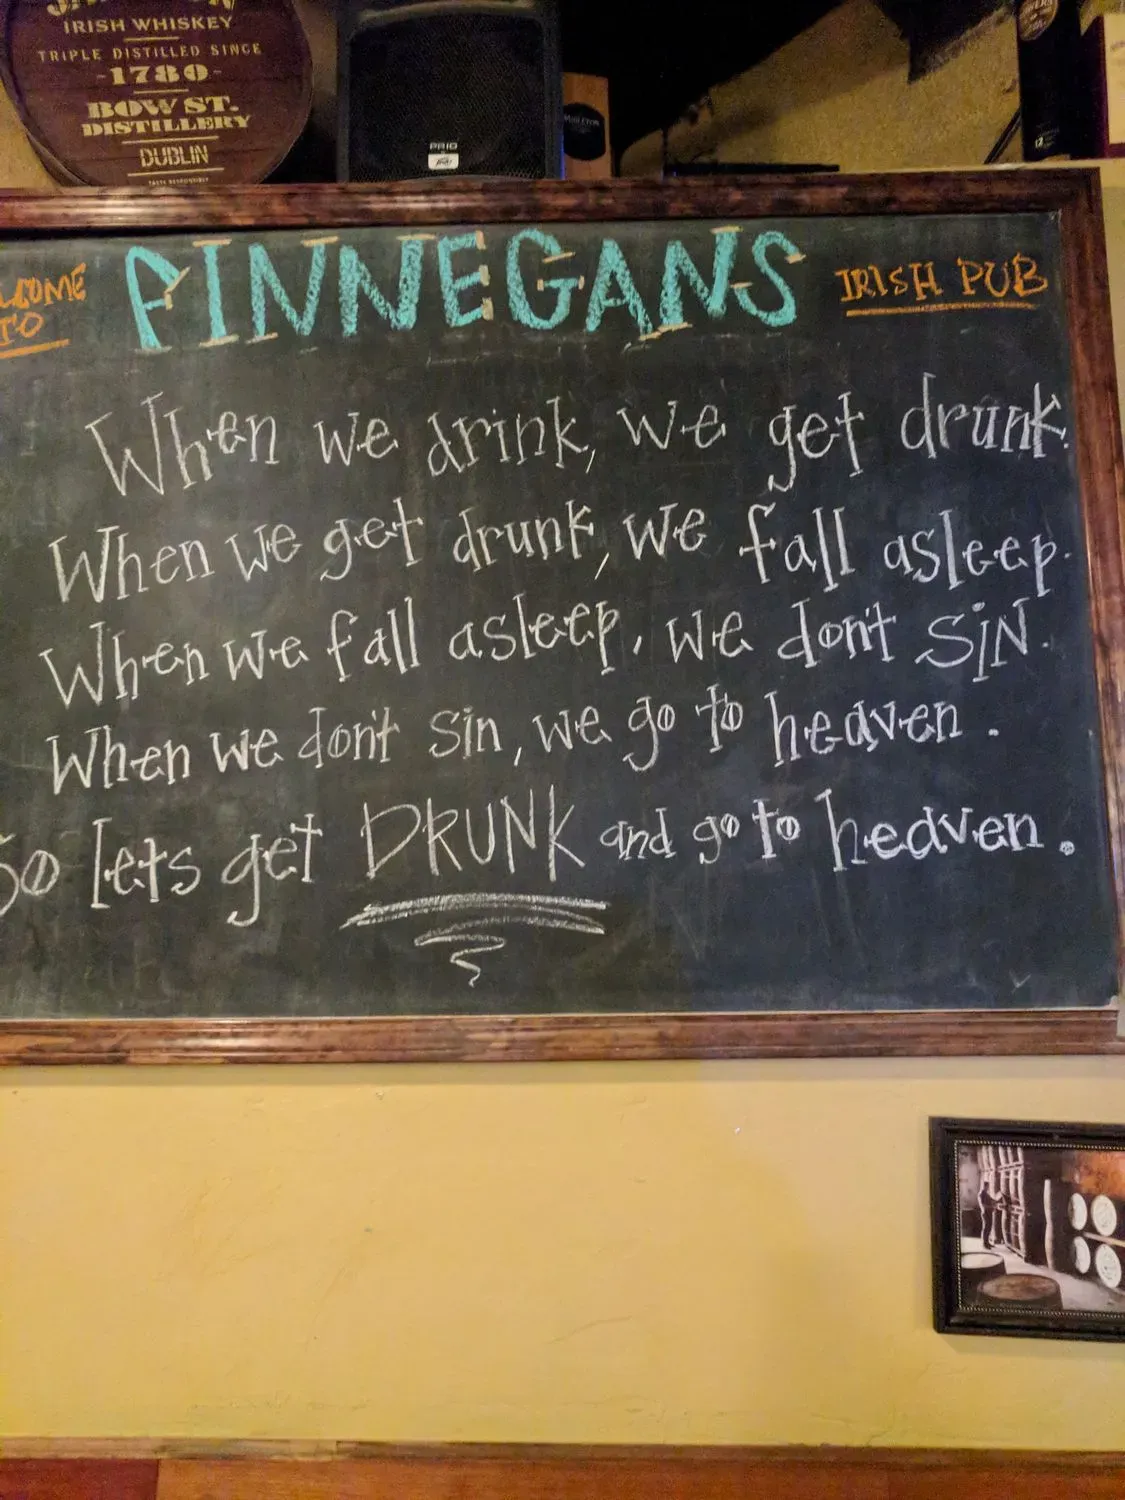 IRISH WHISKEY
TRIPLE DISTILLED SINCE
-1780-
BOW ST.
DISTILLERY
DUBLIN
TASTE RESPONSIBLY
PRIO
FINNEGANS
TO
IRISH PUB
When we drink, we get drunk.
When we get drunk, we fall asleep.
When we fall asleep, we don't SiN.
When we don't sin, we go to heaven.
So lets get DRUNK and go to heaven.